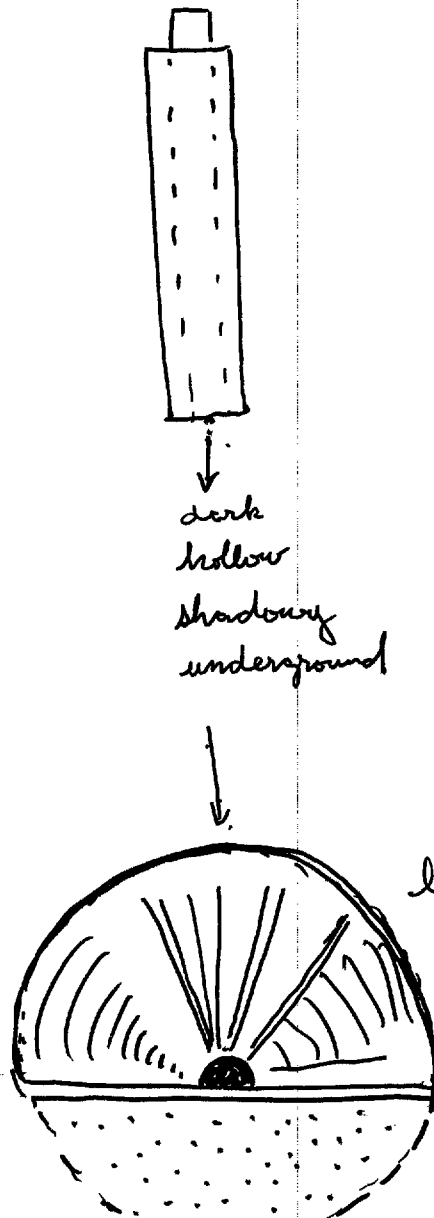 dark
hollow
shadowy
underground